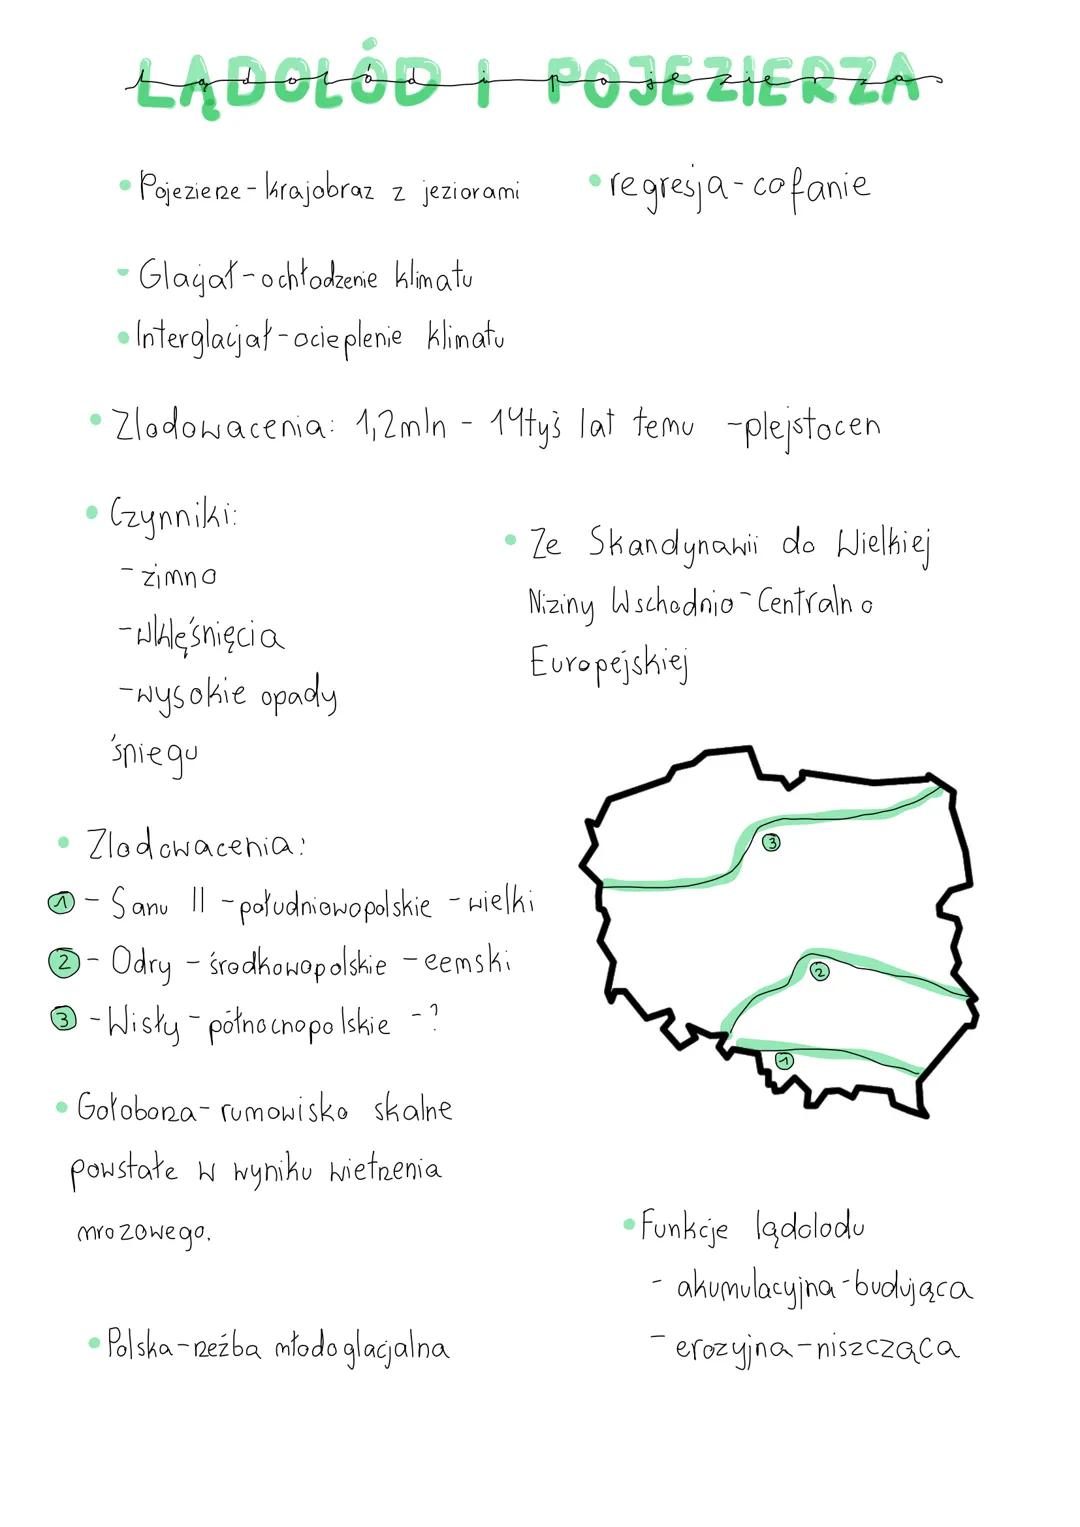 LĄDOLÓD I POJEZIERZA
Lądolód i pojezierza
• Pojezierze - krajobraz z jeziorami
• regresja - cofanie
- Glacjał - ochłodzenie klimatu
• Interglacjał - ocieplenie klimatu
• Zlodowacenia: 1,2mln - 14tyś lat temu - plejstocen
• Czynniki:
- zimno
- wklęśnięcia
- wysokie opady
śniegu
• Ze Skandynawii do Wielkiej
Niziny Wschodnio - Centralno
Europejskiej
• Zlodowacenia:
1 - Sanu II - południowopolskie - wielki
2 - Odry - środkowopolskie - eemski
3 - Wisły - północnopolskie - ?
3
2
1
• Gołoborza - rumowisko skalne
powstałe w wyniku wietrzenia
mrozowego.
• Polska - rzeźba młodoglacjalna
• Funkcje lądolodu
- akumulacyjna - budująca
- erozyjna - niszcząca